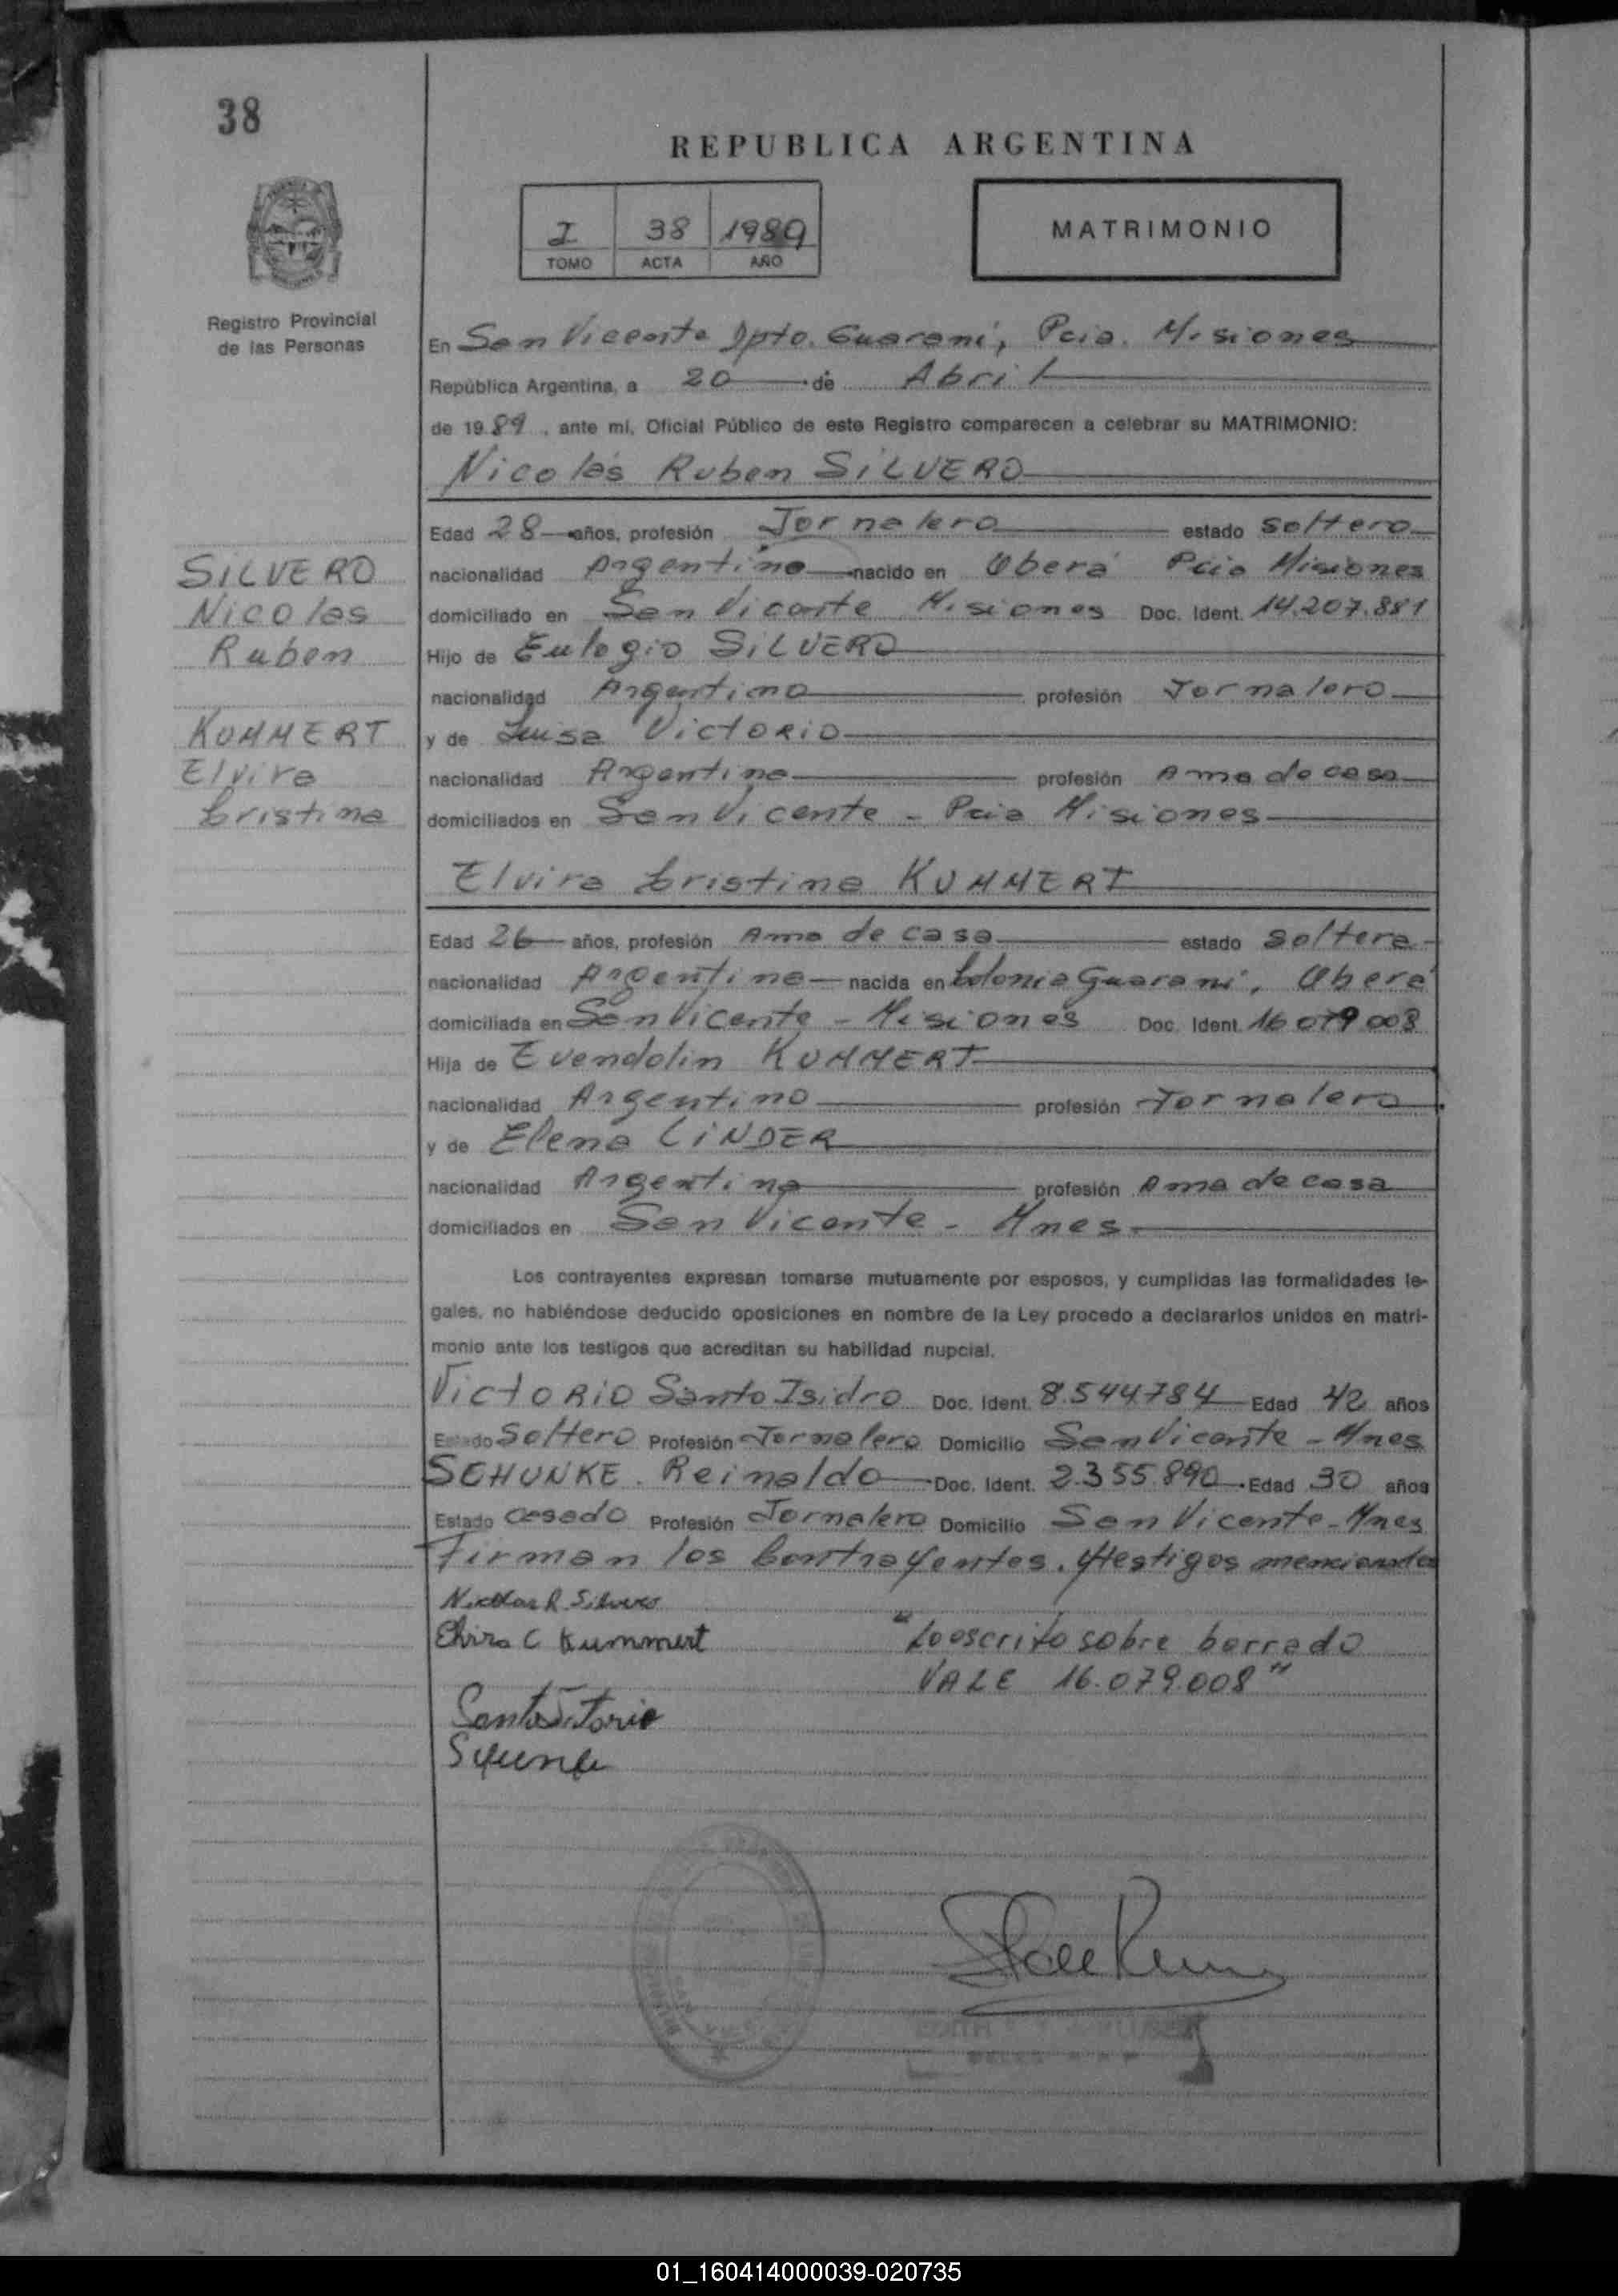 38
REPUBLICA ARGENTINA
I 38 1989
TOMO ACTA AÑO
MATRIMONIO
Registro Provincial
de las Personas
En San Vicente Dpto. Guaraní, Pcia. Misiones
República Argentina, a 20 de Abril
de 1989, ante mí, Oficial Público de este Registro comparecen a celebrar su MATRIMONIO:
Nicolás Ruben SILVERO
Edad 28 años, profesión Jornalero estado soltero
SILVERO
Nicolas
Ruben
nacionalidad Argentino nacido en Oberá Pcia Misiones
domiciliado en San Vicente Misiones Doc. Ident. 14.207.881
Hijo de Eulogio SILVERO
nacionalidad Argentino profesión Jornalero
KUMMERT
Elvira
Cristina
y de Luisa VICTORIO
nacionalidad Argentina profesión Ama de casa
domiciliados en San Vicente - Pcia Misiones
Elvira Cristina KUMMERT
Edad 26 años, profesión Ama de casa estado soltera
nacionalidad Argentina nacida en Colonia Guaraní, Oberá
domiciliada en San Vicente - Misiones Doc. Ident. 16 079 008
Hija de Evendolin KUMMERT
nacionalidad Argentino profesión Jornalero
y de Elena LINDER
nacionalidad Argentina profesión Ama de casa
domiciliados en San Vicente - Mnes.
Los contrayentes expresan tomarse mutuamente por esposos, y cumplidas las formalidades le-
gales, no habiéndose deducido oposiciones en nombre de la Ley procedo a declararlos unidos en matri-
monio ante los testigos que acreditan su habilidad nupcial.
VICTORIO Santo Isidro Doc. Ident. 8.544.784 Edad 42 años
Estado Soltero Profesión Jornalero Domicilio San Vicente - Mnes
SCHUNKE. Reinaldo Doc. Ident. 2.355.890 Edad 30 años
Estado casado Profesión Jornalero Domicilio San Vicente - Mnes
Firman los Contrayentes. y testigos mencionados
Nicolas R. Silvero
Elvira C Kummert
"Lo escrito sobre borrado
VALE 16.079.008"
EDITH
01_160414000039-020735